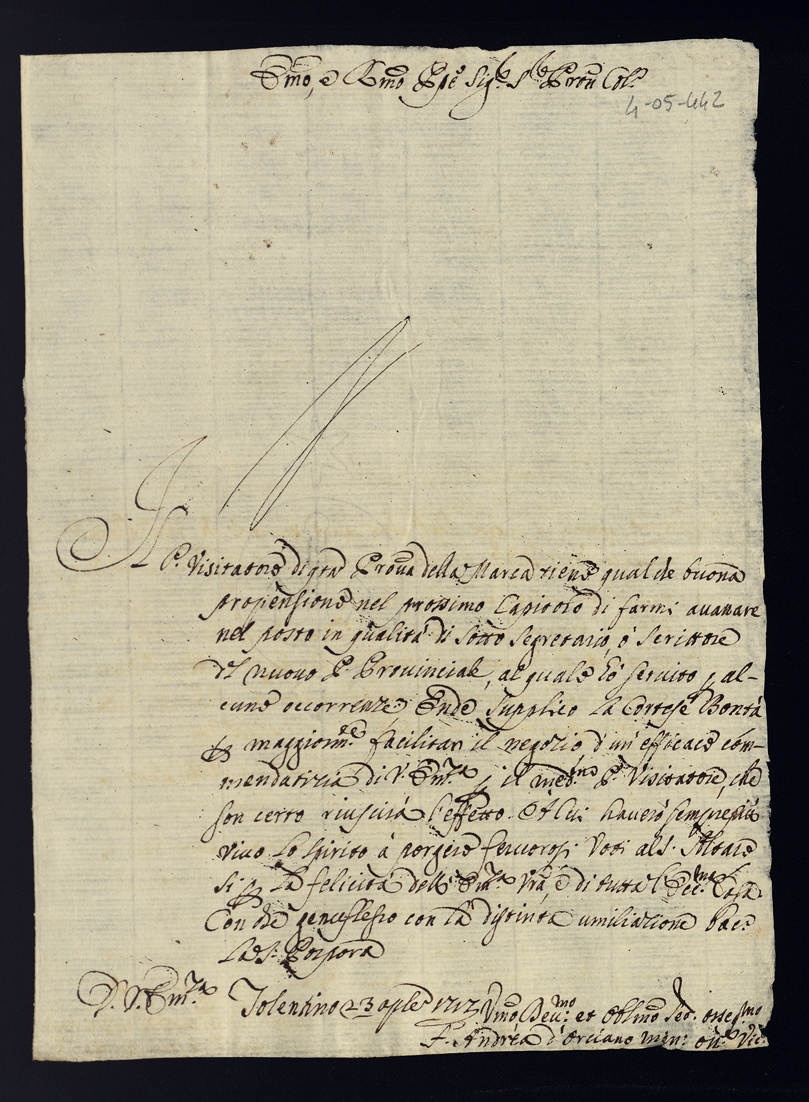 Emo, e Rmo Ppe Sigr. Sre Pron Colmo
4-05-442
Il P. Visitatore di qta Prova della Marca tiene qualche buona
propensione nel prossimo Capitolo di farmi avanzare
nel posto in qualità di Sotto Segretario, ò Scrittore
del nuovo P. Provinciale, al quale hò servito p al-
cune occorrenze. Onde supplico la Cortese Bontà
maggiormte facilitar il negozio d'un efficace com-
mendatizia di V. Emza p il medmo P. Visitatore, che
son certo riuscirà l'effetto. Al cui haverò sempre più
vivo lo spirito à porgere fervorosi Voti al S. Altare
sì p la felicità dell' Emza Vra, e di tutta l'Eccma Casa.
Con che genuflesso con la distinta umiliazione bacio
la S. Porpora
D. V. Emza
Tolentino 23 aple 1713
Vmo Devmo et Oblmo Sed. ossmo
F. Andrea d'Orciano Min: Oss: